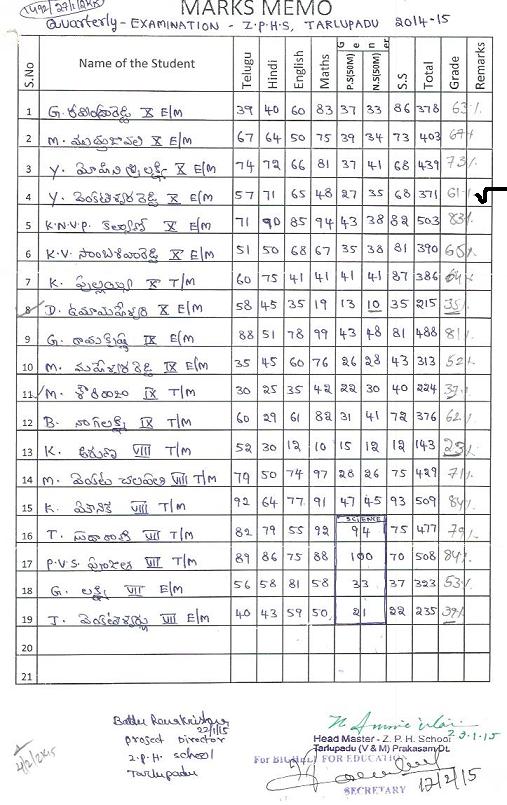 1492/27/1/2015
MARKS MEMO
Quarterly - EXAMINATION - Z.P.H.S, TARLUPADU 2014-15
S.No Name of the Student Telugu Hindi English Maths General P.S(50M) N.S(50M) S.S Total Grade Remarks
1 G. X E/M 39 40 60 83 37 33 86 378 63%
2 M. X E/M 67 64 50 75 39 34 73 403 67%
3 Y. X E/M 74 72 66 81 37 41 68 439 73%
4 Y. వెంకటేశ్వరరెడ్డి X E/M 57 71 65 48 27 35 68 371 61%
5 K.N.V.P. కల్యాణ్ X E/M 71 90 85 94 43 38 82 503 83%
6 K.V. సాంబశివారెడ్డి X E/M 51 50 68 67 35 38 81 390 65%
7 K. పుల్లయ్య X T/M 60 75 41 41 41 41 87 386 64%
8 D. ఉమామహేశ్వరి X E/M 58 45 35 19 13 10 35 215 35%
9 G. రామకృష్ణ IX E/M 88 51 78 99 43 48 81 488 81%
10 M. మహేశ్వరరెడ్డి IX E/M 35 45 60 76 26 28 43 313 52%
11 M. IX T/M 30 25 35 42 22 30 40 224 37%
12 B. నాగలక్ష్మి IX T/M 60 29 61 82 31 41 72 376 62%
13 K. VIII T/M 52 30 12 10 15 12 12 143 23%
14 M. వెంకట చలపతి VIII T/M 79 50 74 97 28 26 75 429 71%
15 K. మౌనిక VIII T/M 92 64 77 91 47 45 93 509 84%
SCIENCE
16 T. VII T/M 82 79 55 92 94 75 477 79%
17 P.V.S. VII T/M 89 86 75 88 100 70 508 84%
18 G. లక్ష్మి VII E/M 56 58 81 58 33 37 323 53%
19 J. వెంకటేశ్వర్లు VII E/M 40 43 59 50 21 22 235 39%
20
21
Battu Ramakrishna
22/1/15
project Director
Z.P.H. school
Tarlupadu
Head Master - Z. P. H. School
23-1-15
Tarlupadu (V & M) Prakasam Dt.
For BIG HELP FOR EDUCATION
12/2/15
SECRETARY